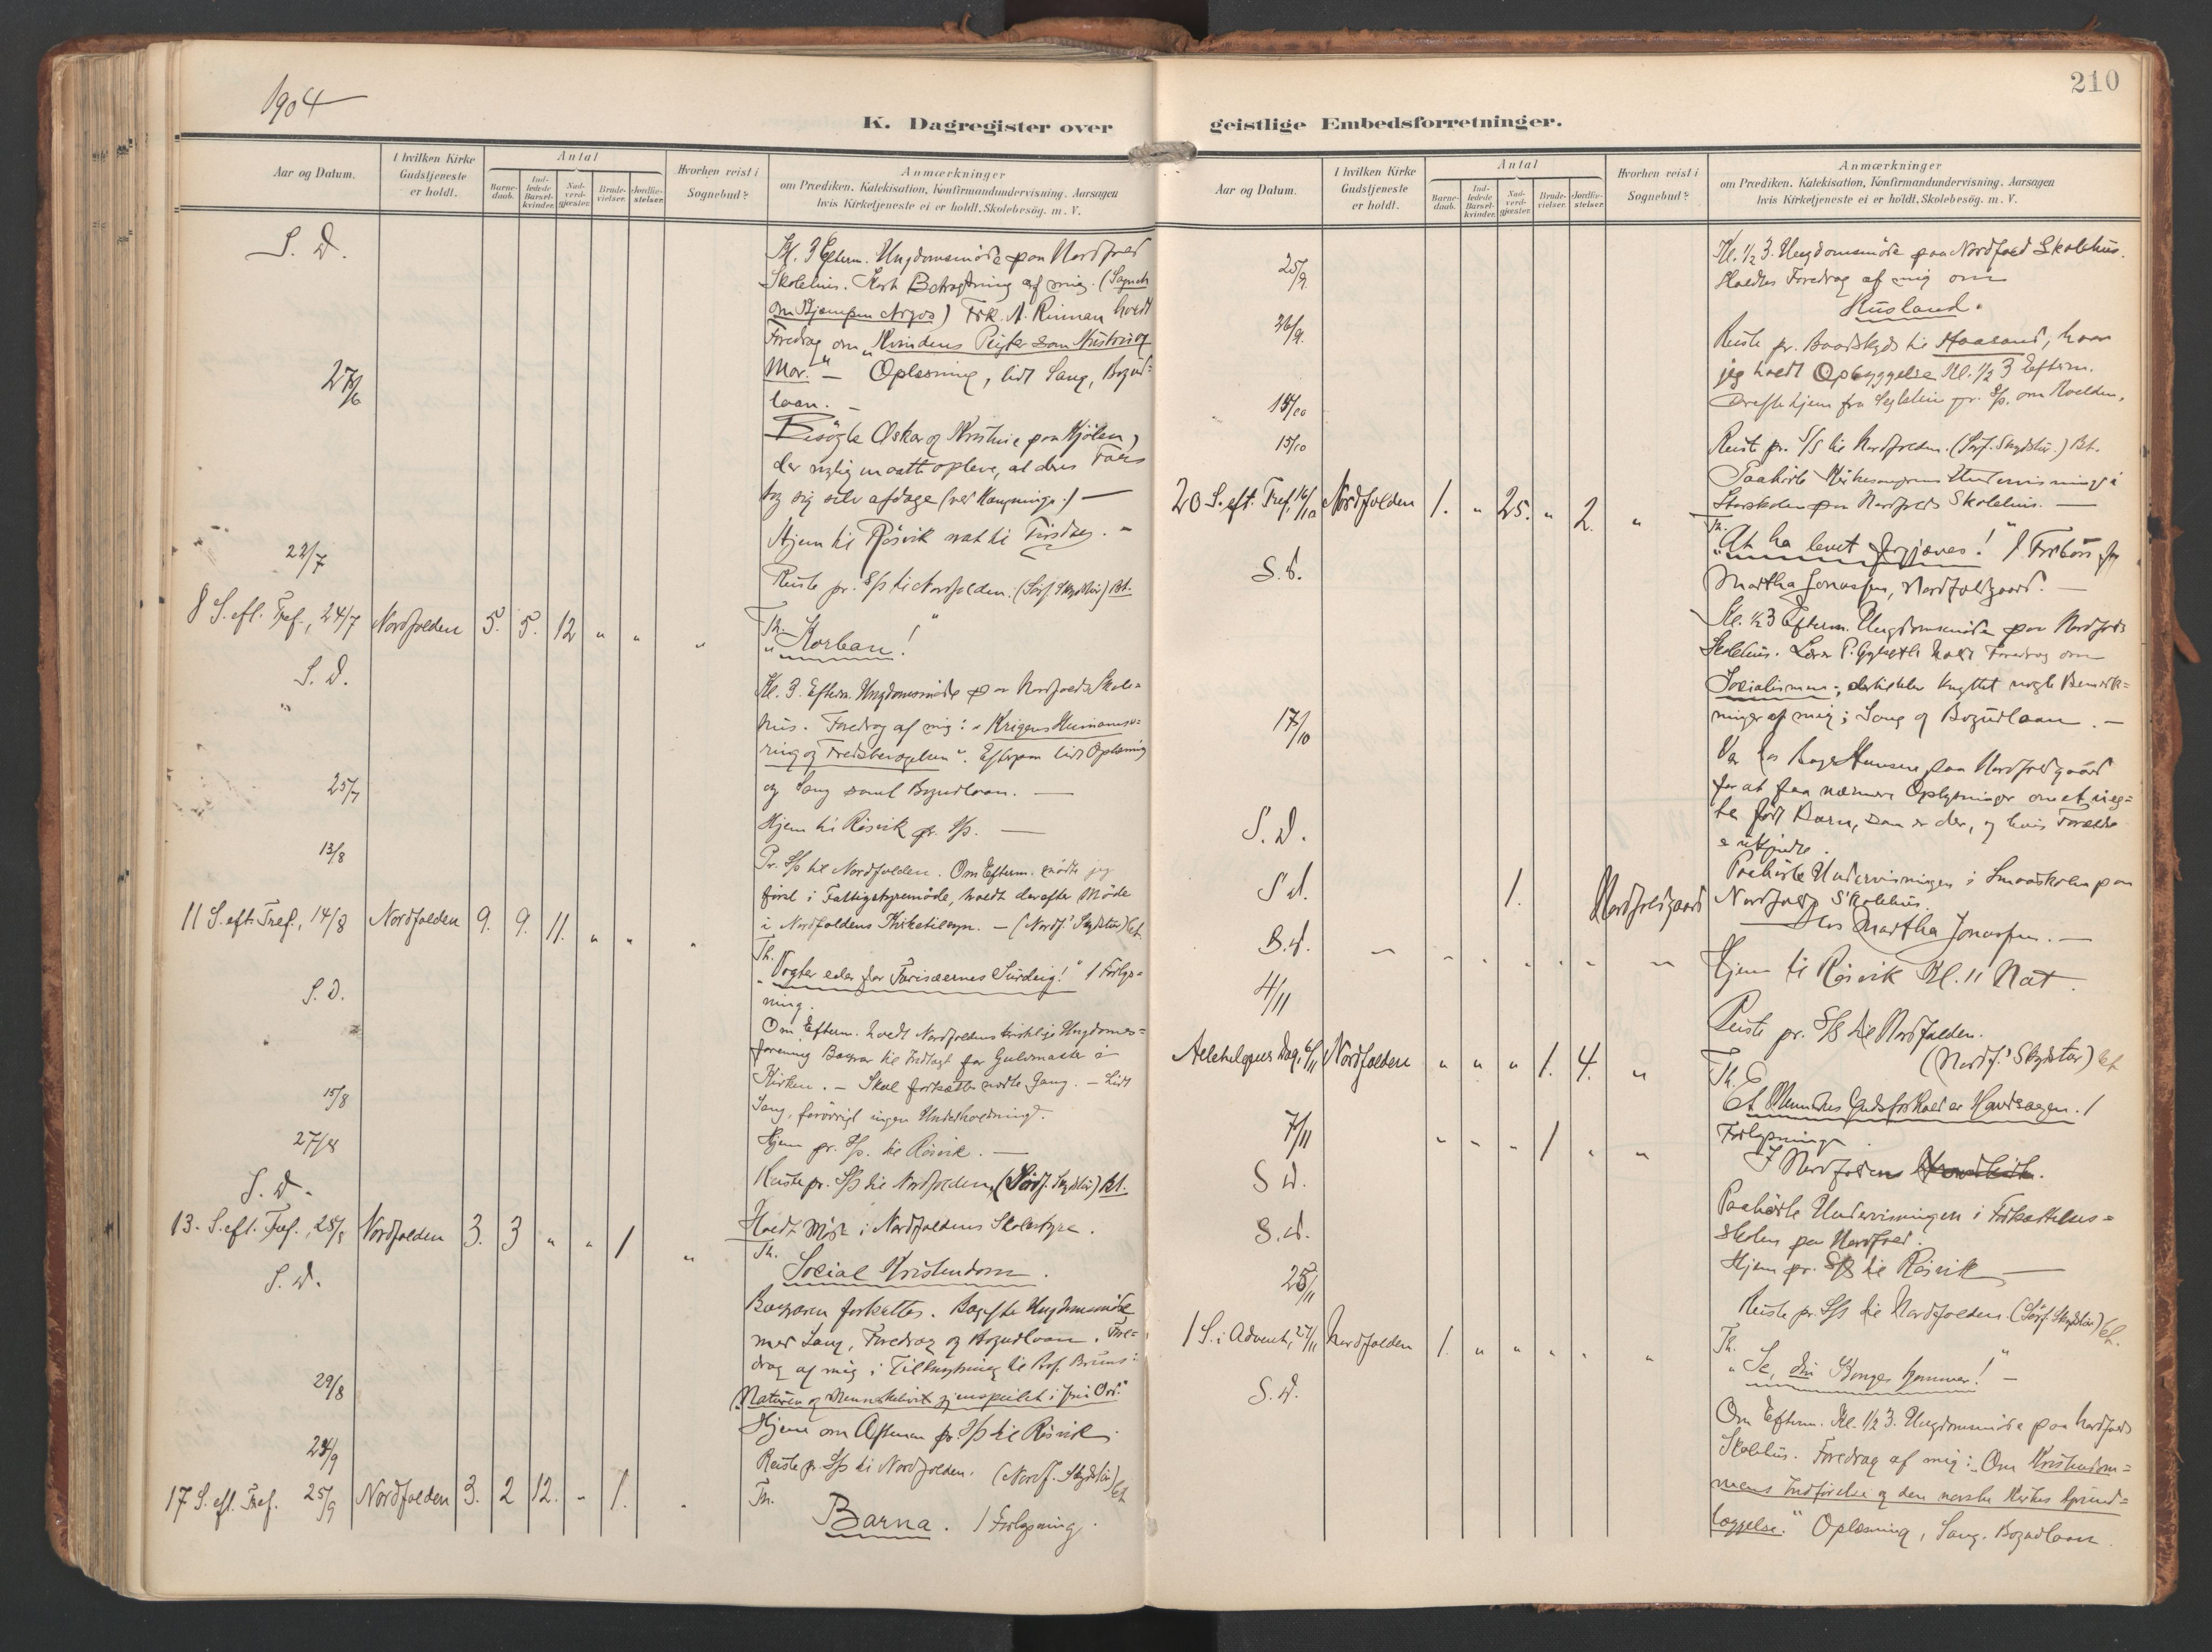 1904
K. Dagregister over
Aar og Datum.
I hvilken Kirke Gudstjeneste er holdt.
Antal
Barnedaab.
Indledede Barselkvinder.
Nadverdgjæster.
Brudevielser.
Jordfæstelser.
Hvorhen reist i Sognebud?
Anmærkninger
om Prædiken, Katekisation, Konfirmandundervisning, Aarsagen
hvis Kirketjeneste ei er holdt, Skolebesøg. m. V.
S. D.
Kl. 3 Efterm. Ungdomsmøde paa Nordfold
Skolehus. Kort Betragtning af mig. (Sagnet
om Kjæmpen Argos) Frk. A. Rinnan holdt
Foredrag om „Kvindens Pligter som Hustru og
Mor." — Oplæsning, lidt Sang, Bogud-
laan. —
27/6
Besøgte Oskar og Kristine paa Kjølen,
der nylig maatte opleve, at deres Fars
tog sig selv afdage (ved Hængning.) —
Hjem til Røsvik nat til Tirsdag. —
22/7
Reiste pr. S/s til Nordfolden. (Sørf. Skydstur) Bt.
8 S. eft. Tref., 24/7 Nordfolden 5. 5. 12 " " "
Th.
„Korban!"
S. D.
Kl. 3. Efterm. Ungdomsmøde paa Nordfolds Skole-
hus. Foredrag af mig: „Krigens Humanise-
ring og Fredsbevægelsen". Efterpaa lidt Oplæsning
og Sang samt Bogudlaan. —
25/7
Hjem til Røsvik pr. S/s. —
13/8
Pr. S/s til Nordfolden. Om Efterm. mødte jeg
først i Fattigstyremøde, holdt derefter Møde
i Nordfoldens Kirketilsyn. — (Nordf.' Skydstur) bt.
11 S. eft. Tref., 14/8 Nordfolden 9. 9. 11. " " "
Th.
„Vogter eder for Farisæernes Surdeig!" 1 Trolys-
ning.
S. D.
Om Efterm. holdt Nordfoldens kirkelige Ungdoms-
forening Basar til Indtægt for Gulvmatte i
Kirken. — Skal fortsætte næste Gang. — Lidt
Sang, forøvrigt ingen Underholdning.
15/8
Hjem pr. S/s. til Røsvik. —
27/8
Reiste pr. S/s til Nordfolden, (Sørf. Skydstur) Bt.
S. D.
Holdt Møde i Nordfoldens Skolestyre.
13. S. eft. Tref., 28/8 Nordfolden 3. 3 " " 1 "
Th.
Social Kristendom.
S. D.
Basaren fortsattes. Bagefter Ungdomsmøde
med Sang, Foredrag og Bogudlaan. Fore-
drag af mig i Tilknytning til Prof. Bruns:
„Naturen og Menneskelivet gjenspeilet i Jesu Ord."
29/8
Hjem om Aftenen pr. S/s til Røsvik.
24/9
Reiste pr. S/s til Nordfolden. (Nordf. Skydstur) bt.
17 S. eft. Tref. 25/9 Nordfolden 3. 2 12. " 1. "
Th.
Barna. 1 Trolysning.
210
geistlige Embedsforretninger.
Aar og Datum.
I hvilken Kirke Gudstjeneste er holdt.
Antal
Barnedaab.
Indledede Barselkvinder.
Nadverdgjæster.
Brudevielser.
Jordfæstelser.
Hvorhen reist i Sognebud?
Anmærkninger
om Prædiken, Katekisation, Konfirmandundervisning, Aarsagen
hvis Kirketjeneste ei er holdt, Skolebesøg. m. V.
25/9.
Kl. 1/2 3. Ungdomsmøde paa Nordfold Skolehus.
Holdtes Foredrag af mig om
Rusland.
26/9.
Reiste pr. Baadskyds til, hvor
jeg holdt Opbyggelse Kl. 1/2 3 Efterm.
hjem fra pr. S/s. om Kvelden,
14/10
Reist pr. S/s til Nordfolden. (Sørf. Skydstur.) Bt.
15/10
Paahørte Undervisning i
Storskolen paa Nordfolds Skolehus. —
20 S. eft. Tref. 16/10 Nordfolden 1. " 25. " 2. "
Th.
„At ha levet forgjæves!"
Martha Jonassen, Nordfoldgaard. —
S. D.
Kl. 1/2 3 Efterm. Ungdomsmøde paa Nordfolds
Skolehus. Lærer P. holdt Foredrag om
Socialismen; dertil blev knyttet nogle Bemærk-
ninger af mig; Sang og Bogudlaan. —
17/10
Var hos Hansen paa Nordfoldgaard
for at faa nærmere Oplysninger om et uæg-
te født Barn, som er der, og hvis Forældre
er ukjendte.
S. D.
Paahørte Undervisningen i Smaaskolen paa
Nordfolds Skolehus.
S. D. 1. Nordfoldgaard
Hos Martha Jonassen. —
S. D. — " " " " " —
Hjem til Røsvik Kl. 11 Nat.
4/11
Reiste pr. S/s til Nordfolden.
(Nordf.' Skydstur) bt.
Allehelgens Dag, 6/11 Nordfolden " " " 1. 4. "
Th.
Et Menneskes Gudsforhold er Hovedsagen. 1
Trolysning.
7/11 " " " 1 " "
I Nordfoldens
S. D.
Paahørte Undervisningen i Fortsættelses-
skolen paa Nordfold.
S. D.
Hjem pr. S/s til Røsvik —
25/11
Reiste pr. S/s til Nordfolden. (Sørf. Skydstur) bt.
1 S. i Advent, 27/11 Nordfolden 1. " " " " "
Th.
„Se, din Konge kommer!" —
S. D.
Om Efterm. Kl. 1/2 3. Ungdomsmøde paa Nordfolds
Skolehus. Foredrag af mig: „Om Kristendom-
mens Indførelse og den norske Kirkes Grund-
læggelse." Oplæsning, Sang. Bogudlaan.